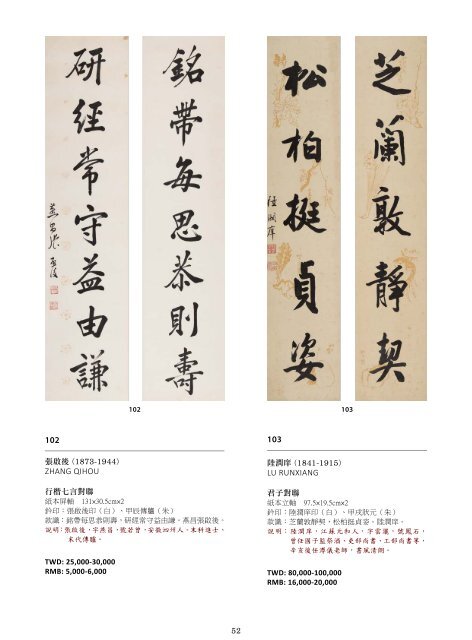 銘帶每思恭則壽
研經常守益由謙
燕昌張啟後
芝蘭敦靜契
松柏挺貞姿
陸潤庠
102
103
102
張啟後（1873-1944）
ZHANG QIHOU
行楷七言對聯
紙本屏軸　131×30.5cm×2
鈐印：張啟後印（白）、甲辰傳臚（朱）
款識：銘帶每思恭則壽，研經常守益由謙。燕昌張啟後。
說明：張啟後，字燕昌，號若曾，安徽泗州人。末科進士，
末代傳臚。
TWD: 25,000-30,000
RMB: 5,000-6,000
103
陸潤庠（1841-1915）
LU RUNXIANG
君子對聯
紙本立軸　97.5×19.5cm×2
鈐印：陸潤庠印（白）、甲戌狀元（朱）
款識：芝蘭敦靜契，松柏挺貞姿。陸潤庠。
說明：陸潤庠，江蘇元和人，字雲灑，號鳳石，
曾任國子監祭酒、吏部尚書、工部尚書等，
辛亥後任溥儀老師，書風清朗。
TWD: 80,000-100,000
RMB: 16,000-20,000
52